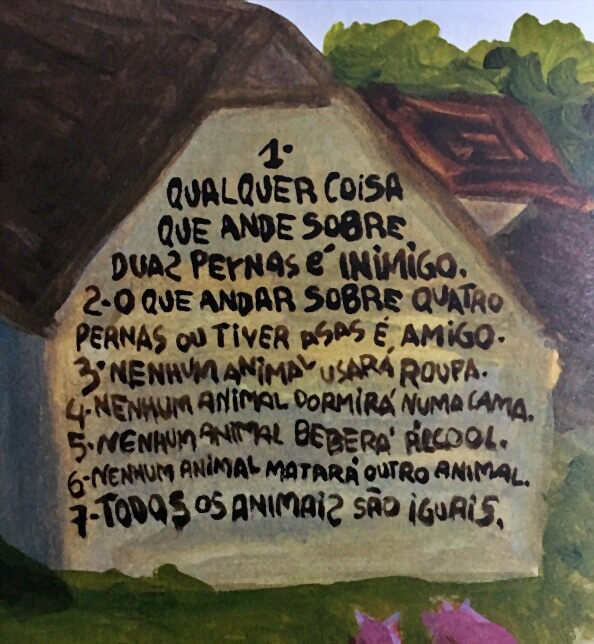 1.
QUALQUER COISA
QUE ANDE SOBRE
DUAS PERNAS É INIMIGO.
2-O QUE ANDAR SOBRE QUATRO
PERNAS OU TIVER ASAS É AMIGO.
3-NENHUM ANIMAL USARÁ ROUPA.
4-NENHUM ANIMAL DORMIRÁ NUMA CAMA.
5-NENHUM ANIMAL BEBERÁ ÁLCOOL.
6-NENHUM ANIMAL MATARÁ OUTRO ANIMAL.
7-TODOS OS ANIMAIS SÃO IGUAIS.